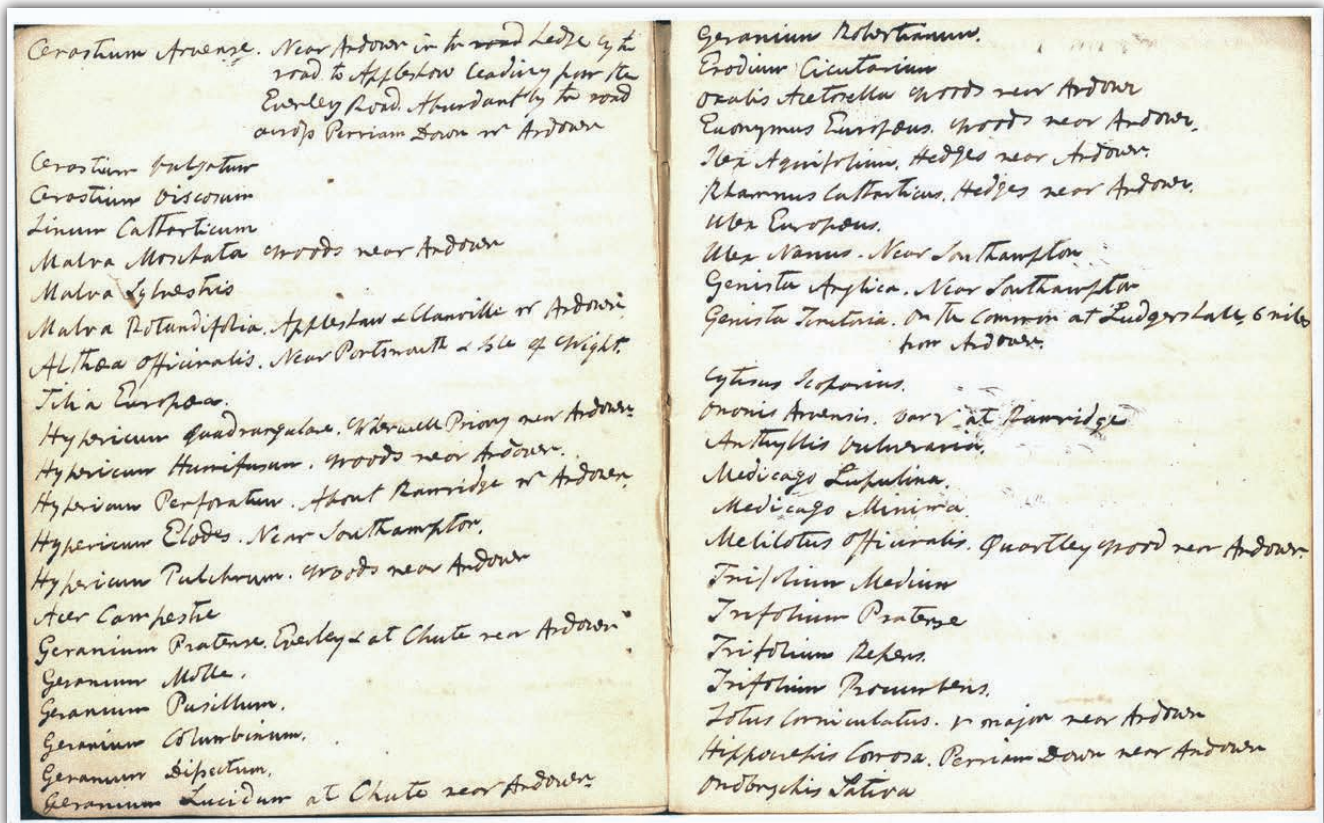 Cerastium Arvense. Near Andover in the road Ledge by the
road to Appleshaw leading from the
Everley Road. Abundant by the road
across Perriam Down nr Andover
Cerastium Vulgatum
Cerastium Viscosum
Linum Catharticum
Malva Moschata woods near Andover
Malva Sylvestris
Malva Rotundifolia. Appleshaw & Clanville nr Andover
Althæa Officinalis. Near Portsmouth & Isle of Wight.
Tilia Europæa.
Hypericum Quadrangulare. Wherwell Priory near Andover
Hypericum Humifusum. woods near Andover.
Hypericum Perforatum. About Ramridge nr Andover
Hypericum Elodes. Near Southampton.
Hypericum Pulchrum. woods near Andover
Acer Campestre
Geranium Pratense. Everley & at Chute near Andover
Geranium Molle.
Geranium Pusillum.
Geranium Columbinum.
Geranium Dissectum.
Geranium Lucidum at Chute near Andover
Geranium Robertianum.
Erodium Cicutarium
Oxalis Acetosella woods near Andover
Euonymus Europæus. woods near Andover.
Ilex Aquifolium. Hedges near Andover.
Rhamnus Catharticus. Hedges near Andover.
Ulex Europæus.
Ulex Nanus. Near Southampton
Genista Anglica. Near Southampton
Genista Tinctoria. On the Common at Ludgershall, 6 miles
from Andover.
Cytisus Scoparius.
Ononis Arvensis. var at Ramridge
Anthyllis Vulneraria.
Medicago Lupulina.
Medicago Minima.
Melilotus Officinalis. Quartley wood near Andover
Trifolium Medium
Trifolium Pratense
Trifolium Repens.
Trifolium Procumbens.
Lotus Corniculatus. v major near Andover
Hippocrepis Comosa. Perriam Down near Andover
Onobrychis Sativa